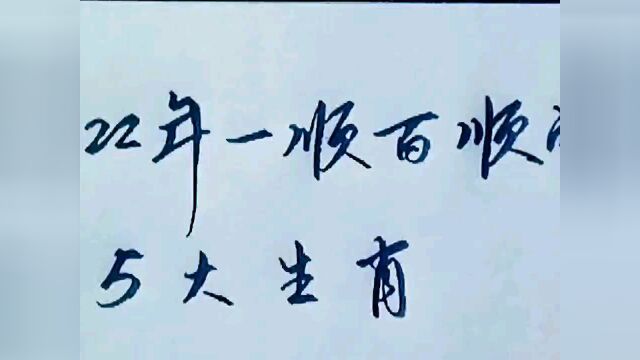 22年一顺百顺
5大生肖